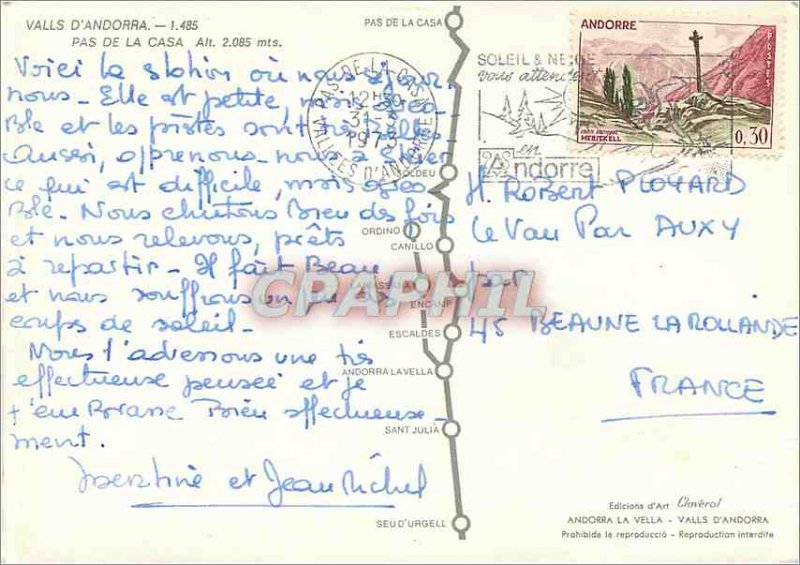 VALLS D'ANDORRA. — 1.485
PAS DE LA CASA Alt. 2.085 mts.
Voici la station où nous séjour-
nons - Elle est petite, mais agréa-
ble et les pistes sont très belles
Aussi, apprenons-nous à skier
ce qui est difficile, mais agréa-
ble. Nous chutons bien des fois
et nous relevons, prêts
à repartir - Il fait Beau
et nous souffrons un peu des
coups de soleil -
Nous t'adressons une très
affectueuse pensée et je
t'embrasse Bien affectueuse-
ment.
et Jean Michel
PAS DE LA CASA
SOLDEU
ORDINO
CANILLO
LA MASSANA
ENCAMP
ESCALDES
ANDORRA LA VELLA
SANT JULIÀ
SEU D'URGELL
PAS-DE-LA-CASA
12H30
31-3
1973
VALLÉES D'ANDORRE
SOLEIL & NEIGE
vous attendent
en
Andorre
ANDORRE
POSTES
CROIX GOTHIQUE
MERITXELL
0,30
M. Robert PLOYARD
Le Vau Par AUXY
45 BEAUNE LA ROLLANDE
FRANCE
CPARPHIL
Edicions d'Art Claverol
ANDORRA LA VELLA - VALLS D'ANDORRA
Prohibida la reproducció - Reproduction interdite